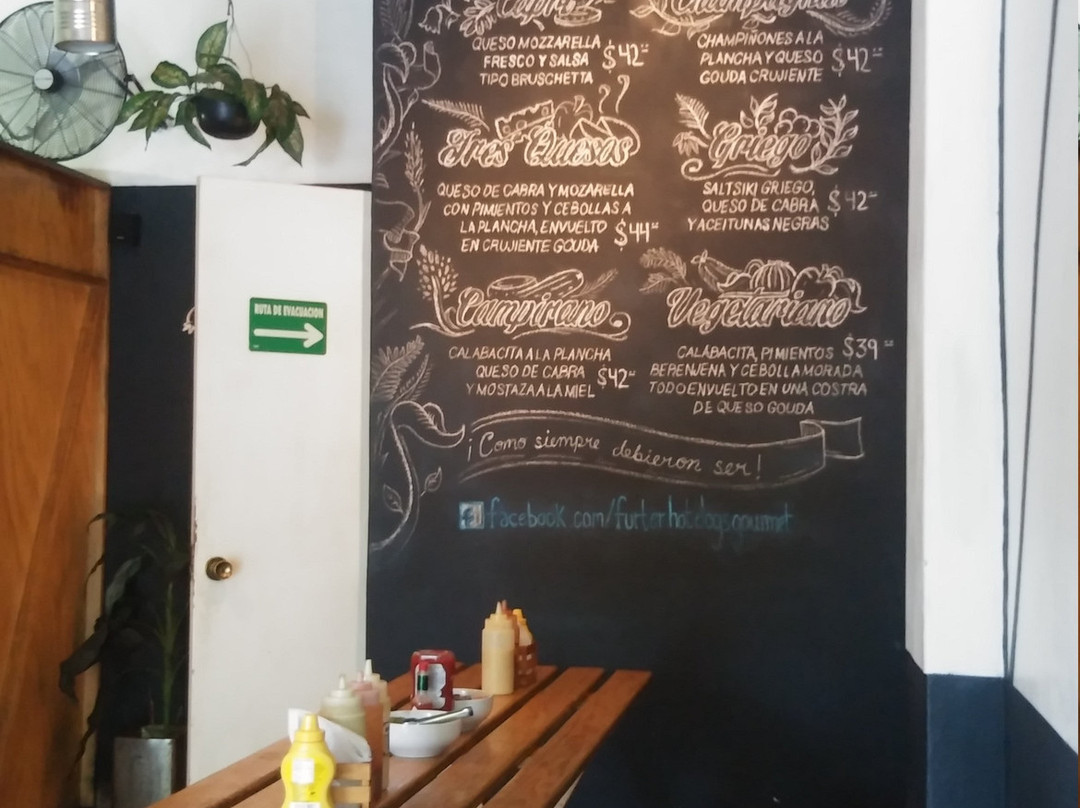 QUESO MOZZARELLA
FRESCO Y SALSA $42
TIPO BRUSCHETTA
CHAMPIÑONES A LA
PLANCHA Y QUESO $42
GOUDA CRUJIENTE
Tres Quesos
QUESO DE CABRA Y MOZARELLA
CON PIMIENTOS Y CEBOLLAS A
LA PLANCHA, ENVUELTO $44
EN CRUJIENTE GOUDA
Griego
SALTSIKI GRIEGO,
QUESO DE CABRA $42
Y ACEITUNAS NEGRAS
Campirano
CALABACITA A LA PLANCHA
QUESO DE CABRA $42
Y MOSTAZA A LA MIEL
Vegetariano
CALABACITA, PIMIENTOS $39
BERENJENA Y CEBOLLA MORADA
TODO ENVUELTO EN UNA COSTRA
DE QUESO GOUDA
¡Como siempre debieron ser!
f facebook.com/furterhotdogsgourmet
RUTA DE EVACUACION